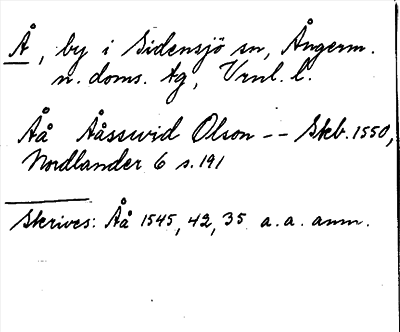 Å, by i Sidensjö sn, Ångerm.
n. doms. tg, Vrnl. l.
Åå Åásswid Olson -- Skb. 1550,
Nordlander 6 s. 191
Skrives: Åå 1545, 42, 35 a. a. anm.